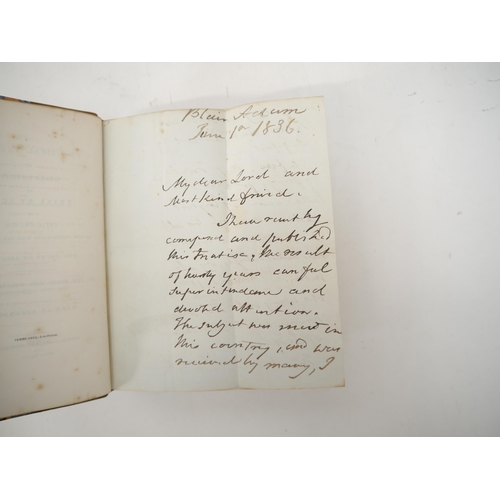 Blair Adam
June 1st 1836.
My dear Lord and
Most Kind friend.
I have recently
composed and published
this treatise, the result
of twenty years careful
superintendance and
devoted attention.
The subject was new in
this country, and was
received by many, I